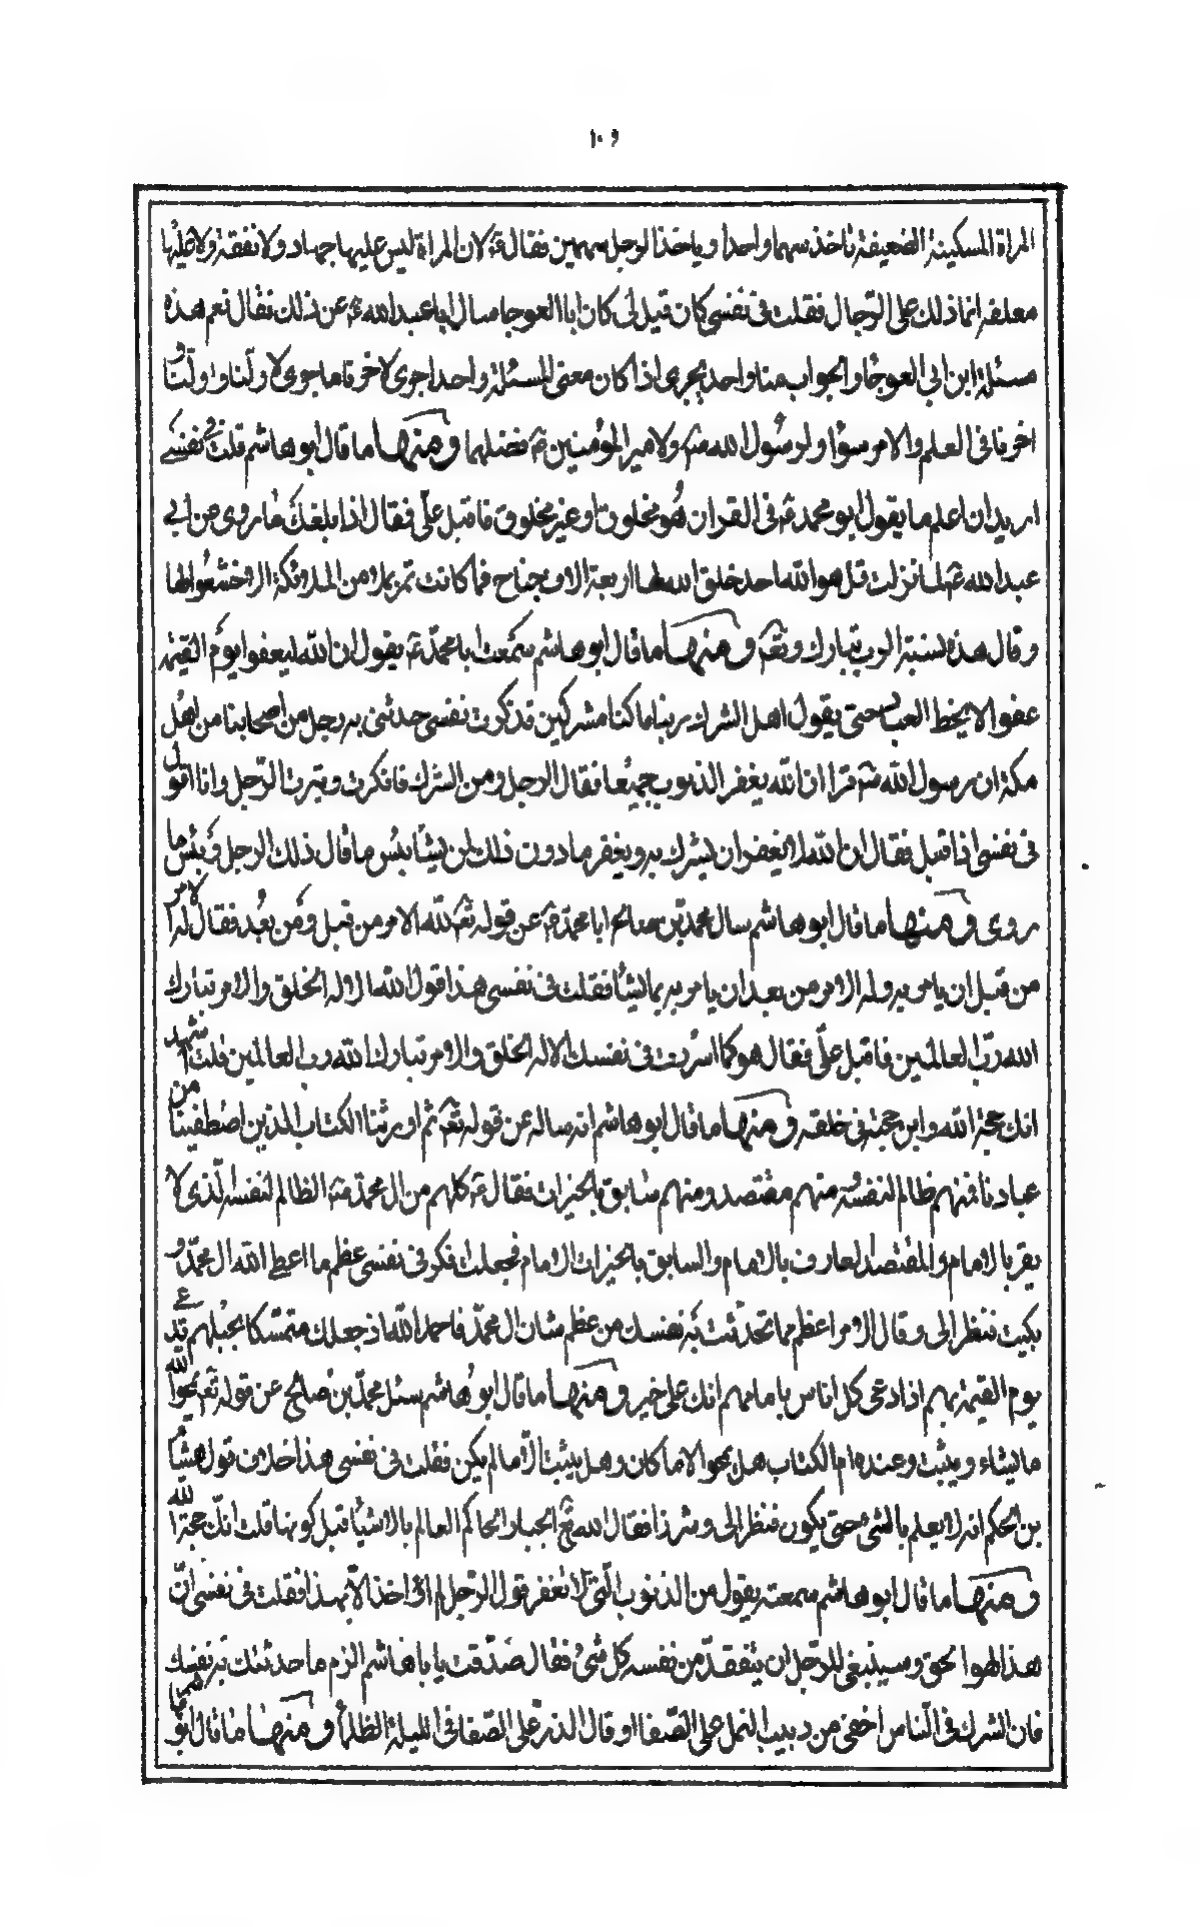 ١٠٩
المراة المسكينة الضعيفة تاخذ سهما واحدا وياخذ الرجل سهمين فقال ع لان المراة ليس عليها جهاد ولا نفقة ولا عليها
معلقة انما ذلك على الرجال فقلت فى نفسى كان قيل لى كان ابا العوجا سال ابا عبد الله ع عن ذلك فقال نعم هذه
مسئلة ابن ابى العوجا والجواب منا واحد يجرى اذا كان معنى المسئلة واحدا جرى لاخرنا ما جرى لاولنا واولنا و
اخرنا فى العلم والامر سوا ولرسول الله ص ولامير المؤمنين ع فضلهما ومنها ما قال ابو هاشم قلت فى نفسى
اريد ان اعلم ما يقول ابو محمد ع فى القران هو مخلوق او غير مخلوق فاقبل على فقال اذا بلغك ما روى عن ابى
عبد الله ع لما نزلت قل هو الله احد خلق الله لها اربعة الاف جناح فما كانت تمر بملا من الملائكة الا خشعوا لها
وقال هذه نسبة الرب تبارك وتعه ومنها ما قال ابو هاشم سمعت ابا محمد ع يقول ان الله ليعفوا يوم القيمة
عفوا لا يخط العبد حتى يقول اهل الشرك ربنا ما كنا مشركين فذكرت نفسى حدثنى به رجل من اصحابنا من اهل
مكة ان رسول الله ص قرا ان الله يغفر الذنوب جميعا فقال الرجل ومن الشرك فانكرت وتبرت الرجل وانا اقول
فى نفسى اذا قبل فقال ان الله لا يغفر ان يشرك به ويغفر ما دون ذلك لمن يشا بئس ما قال ذلك الرجل وبئس ما
روى ومنها ما قال ابو هاشم سال محمد بن صالح ابا محمد ع عن قوله تعه لله الامر من قبل ومن بعد فقال له الامر
من قبل ان يامر به وله الامر من بعد ان يامر به بما يشا فقلت فى نفسى هذا قول الله الا له الخلق والامر تبارك
الله رب العالمين فاقبل على فقال هو كما اسررت فى نفسك الا له الخلق والامر تبارك الله رب العالمين قلت اشهد
انك حجة الله وابن حجته فى خلقه ومنها ما قال ابو هاشم انه ساله عن قوله تعه ثم اورثنا الكتاب الذين اصطفينا من
عبادنا فمنهم ظالم لنفسه ومنهم مقتصد ومنهم سابق بالخيرات فقال ع كلهم من ال محمد ع الظالم لنفسه الذى لا
يقر بالامام والمقتصد العارف بالامام والسابق بالخيرات الامام فجعلت افكر فى نفسى عظم ما اعطى الله ال محمد و
بكيت فنظر الى وقال الامر اعظم مما تحدثت به نفسك من عظم شان ال محمد ع فاحمد الله اذ جعلك متمسكا بحبلهم تدعى
يوم القيمة بهم اذا دعى كل اناس بامامهم انك على خير ومنها ما قال ابو هاشم سئل محمد بن صالح عن قوله تعه يمحوا الله
ما يشاء ويثبت وعنده ام الكتاب هل يمحوا الا ما كان وهل يثبت الا ما لم يكن فقلت فى نفسى هذا خلاف قول هشام
بن الحكم انه لا يعلم بالشئ حتى يكون فنظر الى وشزرا فقال الله تع الجبار الحاكم العالم بالاشيا قبل كونها قلت انك حجة الله
ومنها ما قال ابو هاشم سمعته يقول من الذنوب التى لا تغفر قول الرجل لم اؤاخذ الا بهذا فقلت فى نفسى ان
هذا لهو الحق وسينبغى للرجل ان يتفقد من نفسه كل شئ فقال صدقت يا با هاشم الزم ما حدثتك به نفسك
فان الشرك فى الناس اخفى من دبيب النمل على الصفا او قال الذر على الصفا فى الليلة الظلما ومنها ما قال ابو